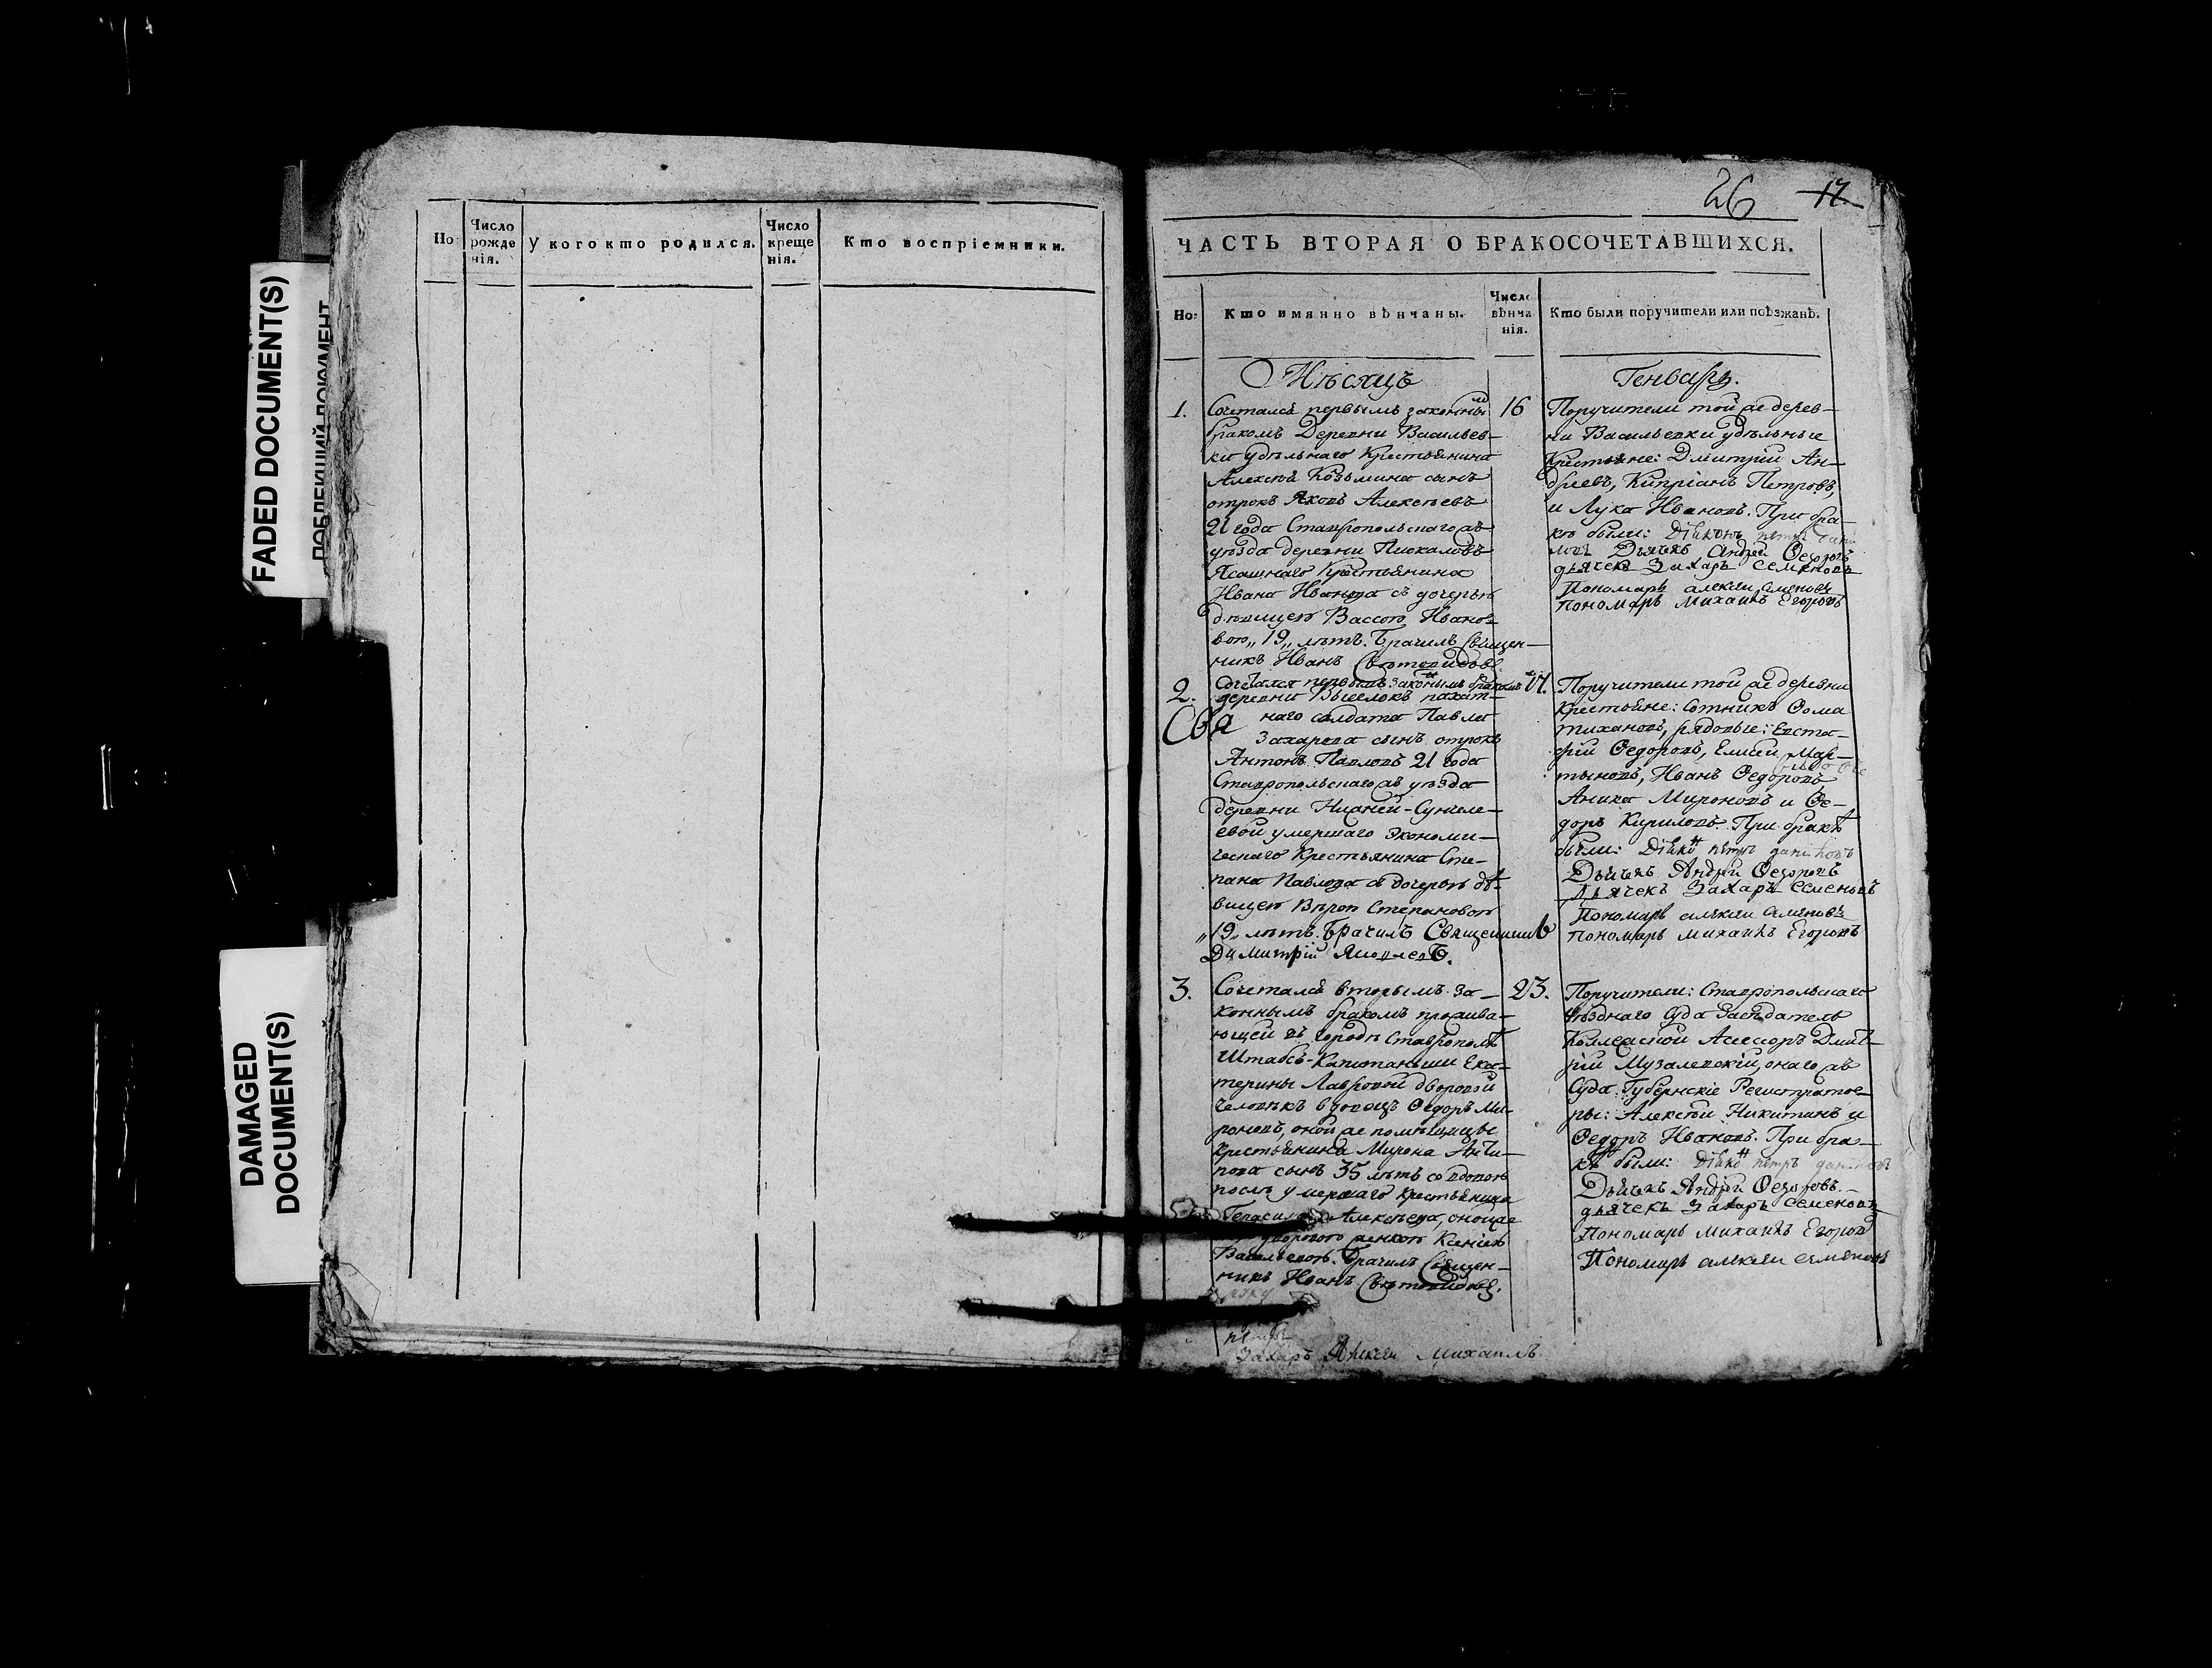 FADED DOCUMENT(S)
ПОБЛЕКШИЙ ДОКУМЕНТ
DAMAGED
DOCUMENT(S)
Но
Число
рожде
нія.
У кого кто родился.
Число
креще
нія.
Кто воспріемники.
26 17
ЧАСТЬ ВТОРАЯ О БРАКОСОЧЕТАВШИХСЯ.
Но:
Кто имянно вѣнчаны.
Число
вѣнча
нія.
Кто были поручители или поѣзжанѣ.
Мѣсяцъ
Генварь.
1.
Сочетался первымъ законны м
бракомъ Деревни Васильев-
ки удѣльнаго Крестьянина
Алексѣя Козьмина сынъ
отрокъ Яковъ Алексѣевъ
21 года Ставропольскаго жъ
уѣзда деревни
Ясашнаго Крестьянина
Ивана Иванова съ дочерью
дѣвицею Вассою Ивано-
вою „19„ лѣтъ. Брачилъ Священ-
никъ Иванъ
16
Поручители той же дерев-
ни Васильевки удѣльные
Крестьяне: Дмитрій Ан-
дреевъ, Кипріанъ Петровъ,
и Лука Ивановъ. При бра-
кѣ были: Діяконъ петръ
Дьячекъ Андрей Ѳедоровъ
дьячекъ Захаръ Семеновъ
Пономарь алексѣи семеновъ
пономарь Михаилъ Егоровъ
2.
Сочтался первымъ законымъ бракомъ
деревни Выселокъ пахат-
наго солдата Павла
Захарова сынъ отрокъ
Антонъ Павловъ 21 года
Ставропольскаго жъ уѣзда
деревни Нижней-Сунчеле-
евой умершаго Экономи-
ческаго Крестьянина Сте-
пана Павлова съ дочерью дѣ-
вицею Вѣрою Степановою
„19„ лѣтъ. Брачилъ Священникъ
Димитрій Яковлевъ.
Поручители той же деревни
Крестьяне: сотникъ Ѳома
тихановъ, рядовые: Евста-
фій Ѳедоровъ, Елисей Мар-
тыновъ, Иванъ Ѳедоровъ
Аника Мироновъ и Ѳе-
доръ Кириловъ. При бракѣ
были: Діяко н петръ даниловъ
Дьячекъ Андрей Ѳедоровъ
дьячекъ Захаръ Семеновъ
Пономарь алексѣи семеновъ
пономарь михаилъ Егоровъ
3.
Сочетался вторымъ за-
коннымъ бракомъ прожива-
ющей въ городѣ Ставрополѣ
Штабсъ-Капитанши Ека-
терины Лавровой дворовой
человѣкъ вдовецъ Ѳедоръ Ми-
роновъ, оной же помѣщицы
крестьянина Мирона Анти-
пова сынъ 35 лѣтъ со вдовою
послѣ умершаго крестьянина
Герасима Алексѣева, оной же
дворового женкою Ксеніею
Васильевою. Брачилъ Священ-
никъ Иванъ
23.
Поручители: Ставропольскаго
Уѣзднаго Суда Засѣдатель
Коллежской Асессоръ Дмит-
рій Музалевскій, онаго жъ
Суда Губернскіе Регистрато-
ры: Алексѣй Никитинъ и
Ѳедоръ Ивановъ. При бра-
кѣ были: Діяко н петръ даниловъ
Дьячекъ Андрей Ѳедоровъ.
дьячекъ Захаръ Семеновъ
пономарь михаилъ Егоровъ
Пономарь алексѣи семеновъ
петръ
Захаръ Алексѣи Михаилъ